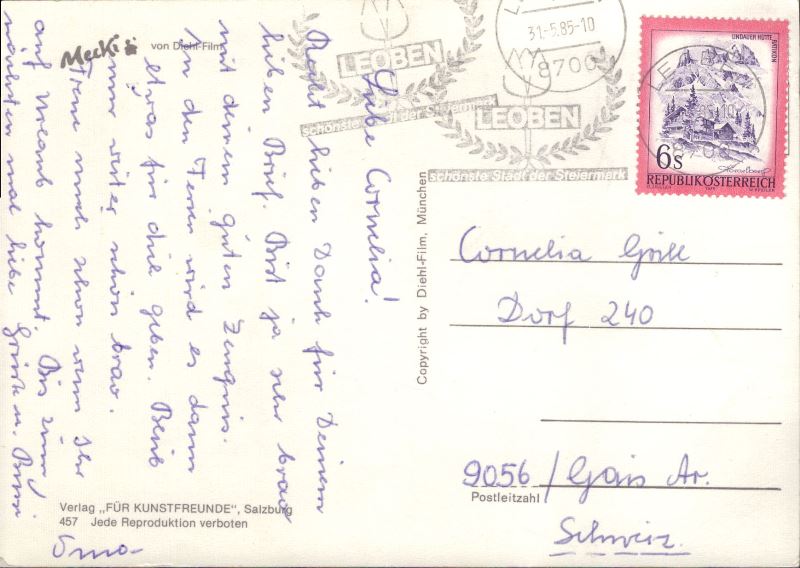 Liebe Cornelia!
Recht lieben Dank für Deinen
lieben Brief. Bist ja sehr brav
mit deinem guten Zeugnis.
In den Ferien wird es dann
etwas für dich geben. Bleib
nur weiter schön brav.
Freue mich schon wenn Ihr
auf Urlaub kommt. Bis zum
nächsten mal liebe Grüße u. Bussi
Oma
Mecki
von Diehl-Film
Verlag „FÜR KUNSTFREUNDE", Salzburg
457 Jede Reproduktion verboten
Copyright by Diehl-Film, München
LEOBEN
schönste Stadt der Steiermark
31.-5.85-10
8700
LEOBEN
schönste Stadt der Steiermark
LINDAUER HÜTTE
RÄTIKON
6s
REPUBLIK ÖSTERREICH
Cornelia Grill
Dorf 240
9056/Gais Ar.
Postleitzahl
Schweiz